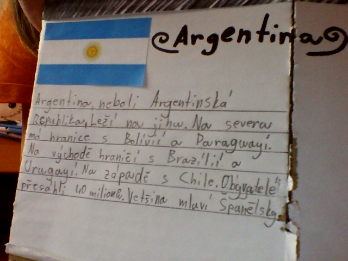 Argentina
Argentina, neboli Argentinská
republika. Leží na jihu. Na severu
má hranice s Bolívií a Paraguayí.
Na východě hraničí s Brazílií a
Uruguayí. Na západě s Chile. Obyvatelé
přesáhli 40 milionů. Většina mluví Španělsky.